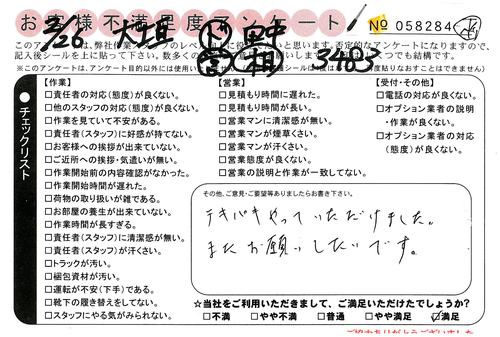 お客様不満足度アンケート
№ 058284
2/26 大垣 ㋣ 田中
3483
※このアンケートは、アンケート目的以外には使用い
【作業】
□責任者の対応(態度)が良くない。
□他のスタッフの対応(態度)が良くない。
□作業を見ていて不安がある。
□責任者(スタッフ)に好感が持てない。
□お客様への挨拶が出来ていない。
□ご近所への挨拶・気遣いが無い。
□作業開始前の内容確認がなかった。
□作業開始時間が遅れた。
□荷物の取り扱いが雑である。
□お部屋の養生が出来ていない。
□作業時間が長すぎる。
□責任者(スタッフ)に清潔感が無い。
□責任者(スタッフ)が汗くさい。
□トラックが汚い。
□梱包資材が汚い。
□運転が不安(下手)である。
□靴下の履き替えをしてない。
□スタッフにやる気がみられない。
【営業】
□見積もり時間に遅れた。
□見積もり時間が長い。
□営業マンに清潔感が無い。
□営業マンが煙草くさい。
□営業マンが汗くさい。
□営業態度が良くない。
□営業の説明と作業が一致してない。
【受付・その他】
□電話の対応が良くない。
□オプション業者の説明
・作業が良くない。
□オプション業者の対応
(態度)が良くない。
●チェックリスト
その他、ご意見・ご要望等ありましたらお書き下さい。
テキパキやっていただけました。
またお願いしたいです。
☆当社をご利用いただきまして、ご満足いただけたでしょうか?
□不満 □やや不満 □普通 □やや満足 ☑満足
ご協力ありがとうございました